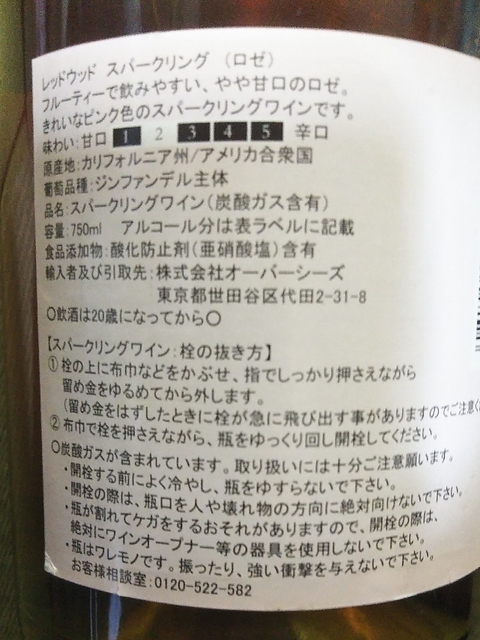 レッドウッド スパークリング （ロゼ）
フルーティーで飲みやすい、やや甘口のロゼ。
きれいなピンク色のスパークリングワインです。
味わい：甘口 1 2 3 4 5 辛口
原産地：カリフォルニア州/アメリカ合衆国
葡萄品種：ジンファンデル主体
品名：スパークリングワイン（炭酸ガス含有）
容量：750ml アルコール分は表ラベルに記載
食品添加物：酸化防止剤（亜硝酸塩）含有
輸入者及び引取先：株式会社オーバーシーズ
東京都世田谷区代田2-31-8
○飲酒は20歳になってから○
【スパークリングワイン：栓の抜き方】
①栓の上に布巾などをかぶせ、指でしっかり押さえながら
留め金をゆるめてから外します。
（留め金をはずしたときに栓が急に飛び出す事がありますのでご注意く
②布巾で栓を押さえながら、瓶をゆっくり回し開栓してください。
○炭酸ガスが含まれています。取り扱いには十分ご注意願います。
・開栓する前によく冷やし、瓶をゆすらないで下さい。
・開栓の際は、瓶口を人や壊れ物の方向に絶対向けないで下さい。
・瓶が割れてケガをするおそれがありますので、開栓の際は、
絶対にワインオープナー等の器具を使用しないで下さい。
・瓶はワレモノです。振ったり、強い衝撃を与えないで下さい。
お客様相談室：0120-522-582